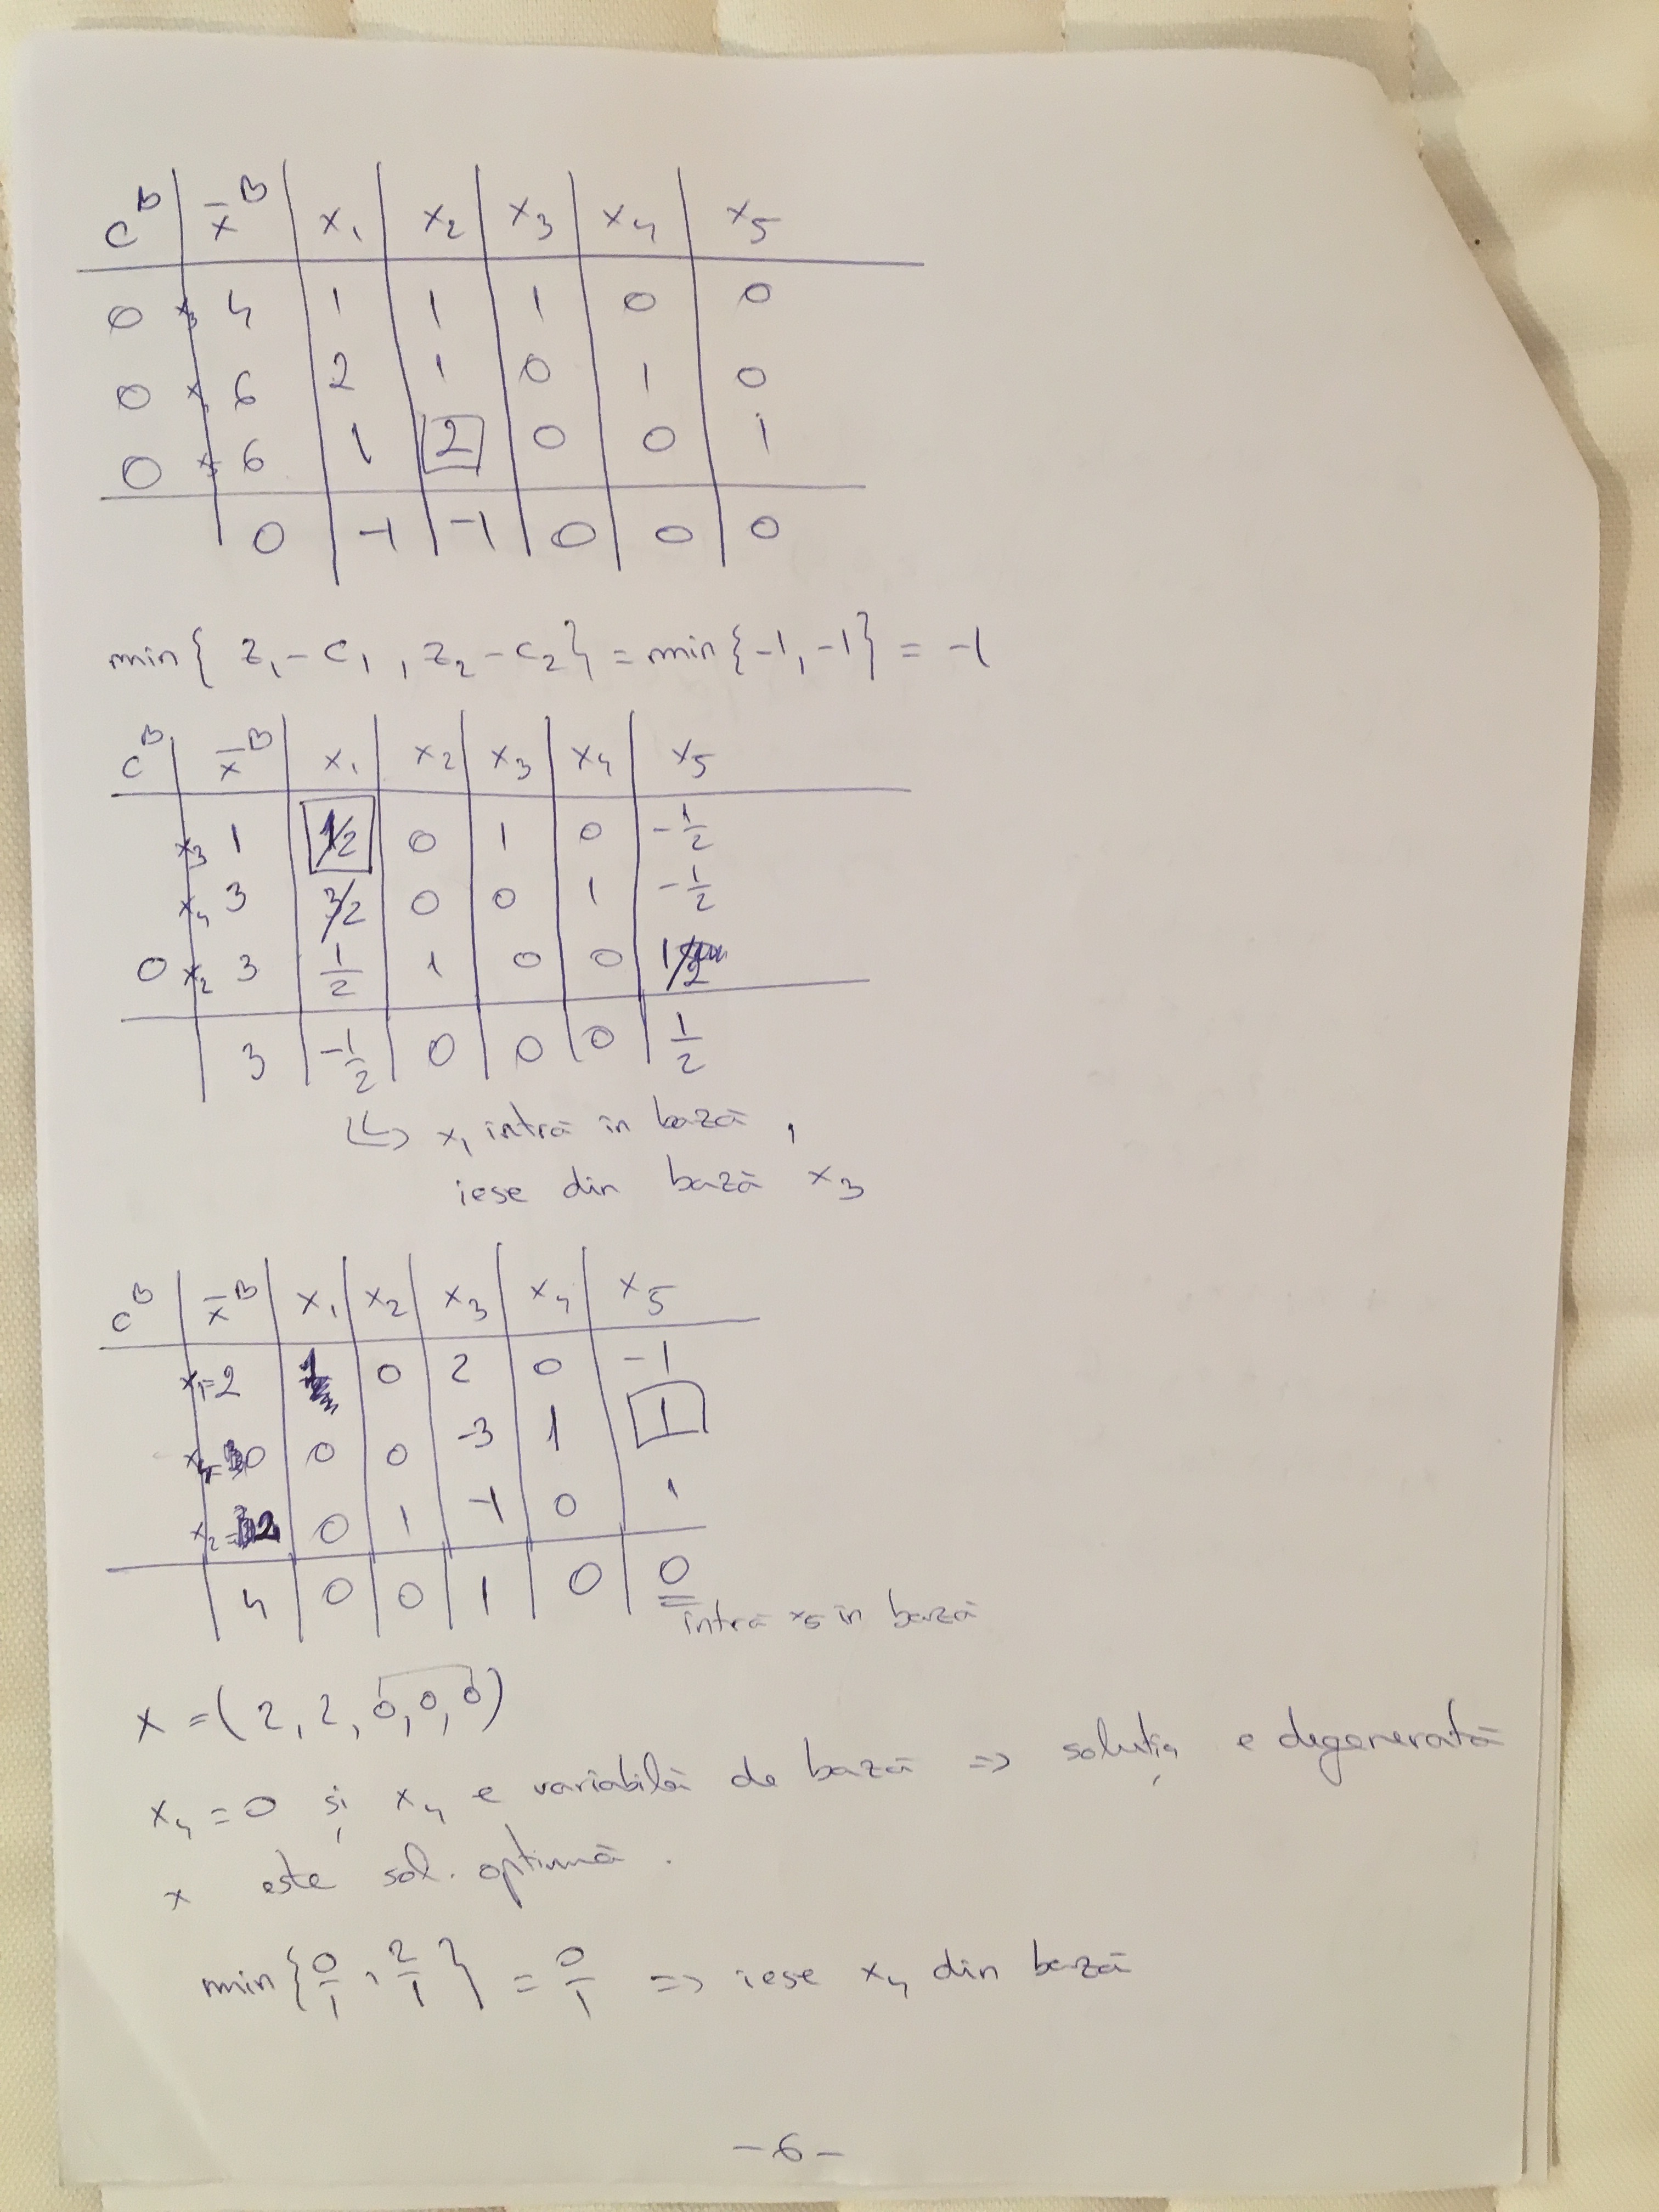 c^B | x̄^B | x₁ | x₂ | x₃ | x₄ | x₅
0 | x₃ 4 | 1 | 1 | 1 | 0 | 0
0 | x 6 | 2 | 1 | 0 | 1 | 0
0 | x 6 | 1 | 2 | 0 | 0 | 1
0 | -1 | -1 | 0 | 0 | 0
min{ z₁-c₁, z₂-c₂} = min{-1,-1} = -1
c^B | x̄^B | x₁ | x₂ | x₃ | x₄ | x₅
x₃ 1 | 1/2 | 0 | 1 | 0 | -1/2
x₄ 3 | 3/2 | 0 | 0 | 1 | -1/2
0 | x₂ 3 | 1/2 | 1 | 0 | 0 | 1/2
3 | -1/2 | 0 | 0 | 0 | 1/2
↳ x₁ intră în bază,
iese din bază x₃
c^B | x̄^B | x₁ | x₂ | x₃ | x₄ | x₅
x₁=2 | 1 | 0 | 2 | 0 | -1
x₄=0 | 0 | 0 | -3 | 1 | 1
x₂=2 | 0 | 1 | -1 | 0 | 1
4 | 0 | 0 | 1 | 0 | 0
intră x₅ în bază
x = (2, 2, 0, 0, 0)
x₄=0 și x₄ e variabilă de bază => soluția e degenerată
x este sol. optimă.
min{0/1, 2/1} = 0/1 => iese x₄ din bază
-6-